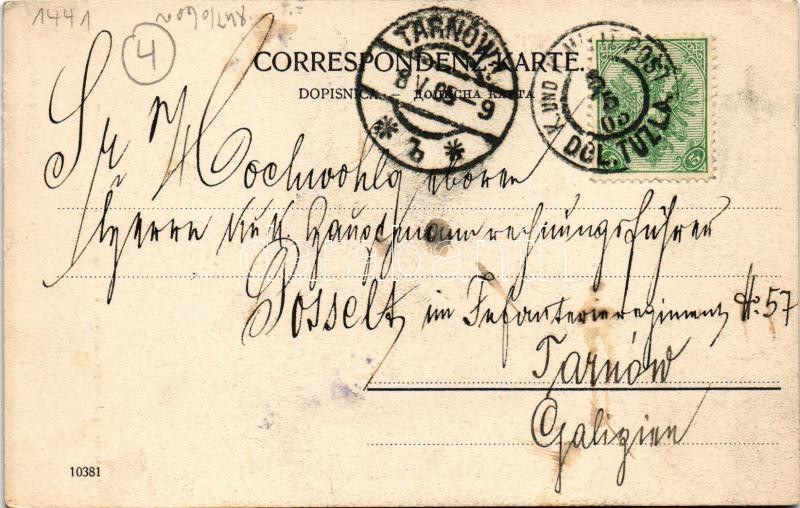 1441
4
CORRESPONDENZ-KARTE.
DOPISNICA. — ДОПИСНА КАРТА
TARNÓW
8 V 05 - 9
* b *
K. UND K. MILIT. POST
5 05
DOL. TUZLA
5
Sr Hochwohlgeboren
Herrn k. u. k. Hauptmannrechnungsführer
Posselt im Infanterieregiment No. 57
Tarnów
Galizien
10381